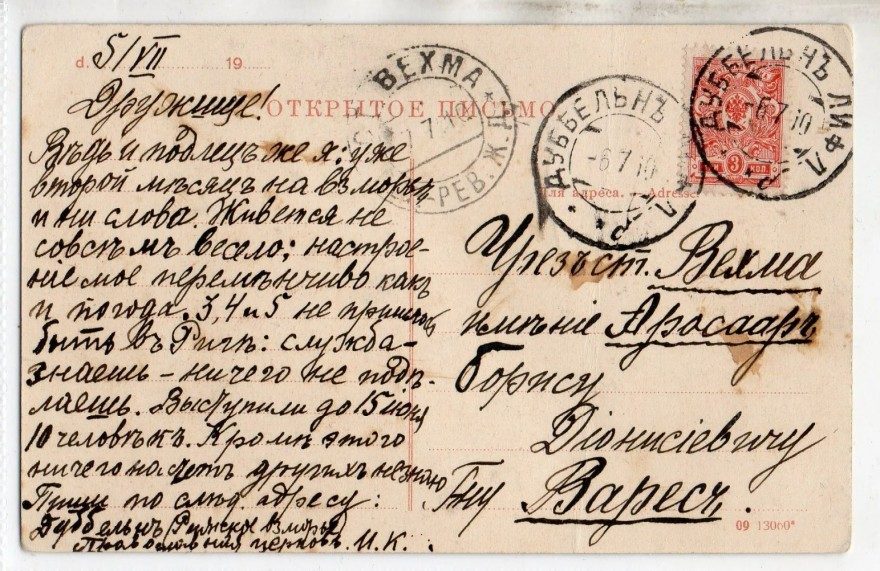 d. 5/VII 19
Дружище!
ОТКРЫТОЕ ПИСЬМО
Вѣдь и подлецъ же я: уже
второй мѣсяцъ на взморьѣ
и ни слова. Живется не
совсѣмъ весело; настрое-
ніе мое перемѣнчиво какъ
и погода. 3, 4 и 5 не пришлось
быть въ Ригѣ: служба-
знаешь - ничего не подѣ-
лаешь. Выступили до 15 іюня
10 человѣкъ. Кромѣ этого
ничего насчетъ другихъ не знаю
Пиши по слѣд. адресу:
Дуббельнъ (Рижское взморье)
Православная церковь. И. К.
ВЕХМА
РЕВ. Ж. Д.
ДУББЕЛЬНЪ
-6 7 10
ДУББЕЛЬНЪ ЛИФЛ.
-6 7 10
3 КОП.
Для адреса. - Adresse
Чрезъ ст. Вехма
имѣніе Аросааръ
Борису
Діонисіевичу
Гну Варесъ.
09 13060*